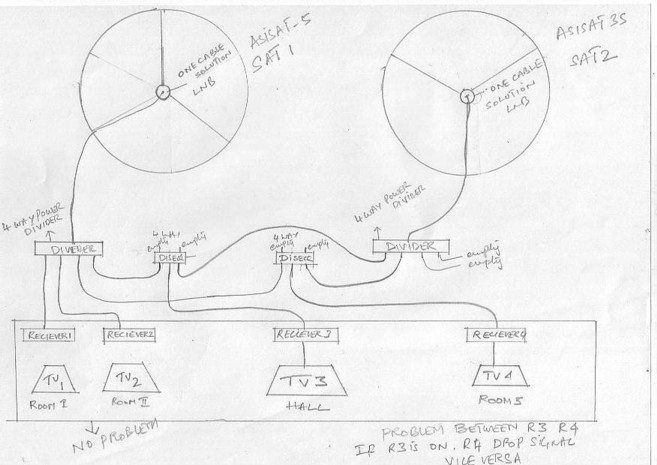 ASISAT-5
SAT 1
ONE CABLE
SOLUTION
LNB
ASISAT 3S
SAT2
ONE CABLE
SOLUTION
LNB
4 WAY POWER
DIVIDER
DIVIDER
4 WAY
empty
empty
DISEC
4 WAY
empty
empty
DISEC
4 WAY POWER
DIVIDER
DIVIDER
empty
empty
RECIEVER1
RECIEVER2
RECIEVER3
RECIEVER4
TV1
TV2
TV3
TV4
ROOM I
ROOM II
HALL
ROOM 5
NO PROBLEM
PROBLEM BETWEEN R3 R4
IF R3 IS ON. R4 DROP SIGNAL
VICE VERSA